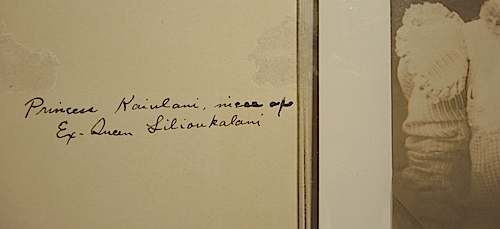 Princess Kaiulani, niece of
Ex-Queen Lilioukalani